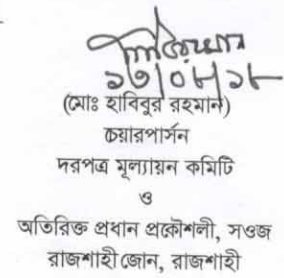 ১৩/০৮/১৮
(মোঃ হাবিবুর রহমান)
চেয়ারপার্সন
দরপত্র মূল্যায়ন কমিটি
ও
অতিরিক্ত প্রধান প্রকৌশলী, সওজ
রাজশাহী জোন, রাজশাহী